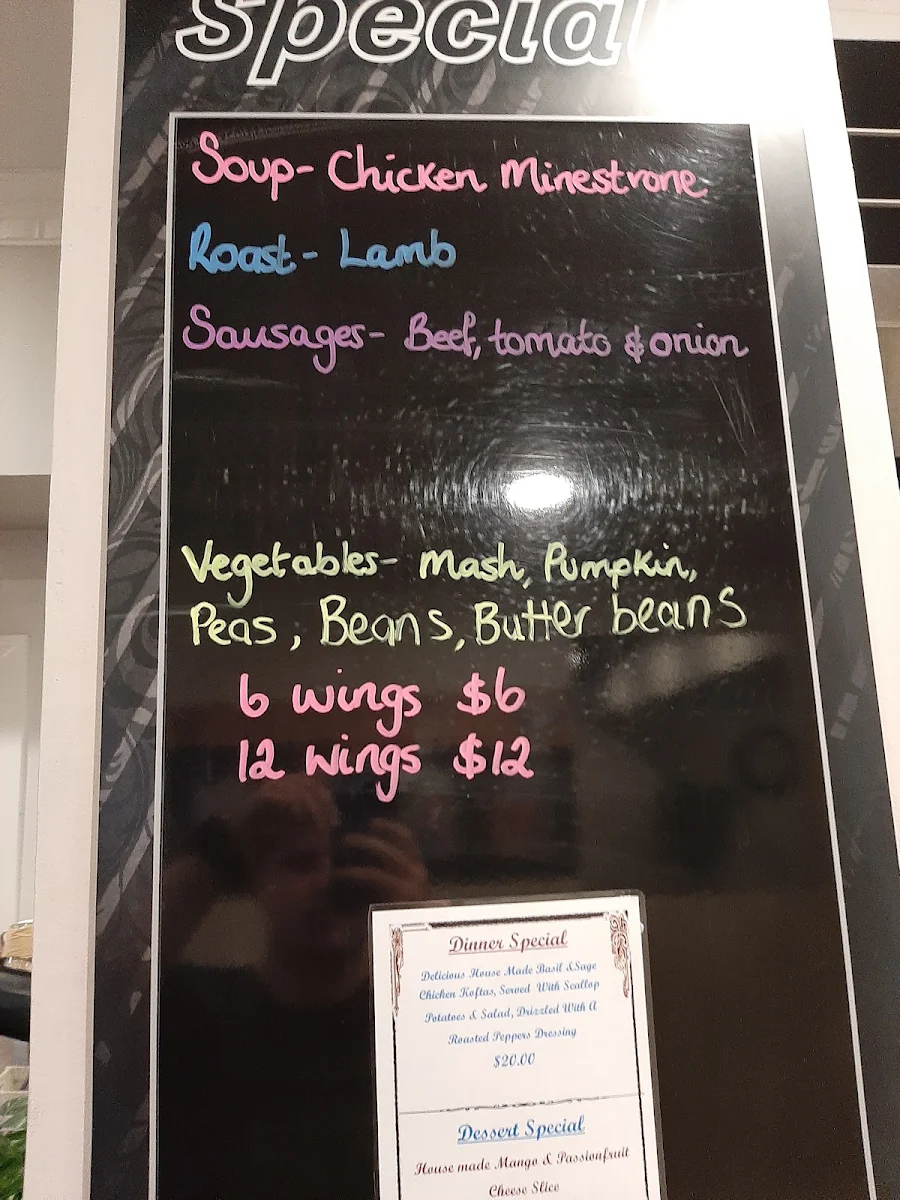 Special
Soup- Chicken Minestrone
Roast- Lamb
Sausages- Beef, tomato & onion
Vegetables- Mash, Pumpkin,
Peas, Beans, Butter beans
6 wings $6
12 wings $12
Dinner Special
Delicious House Made Basil & Sage
Chicken Koftas, Served With Scallop
Potatoes & Salad, Drizzled With A
Roasted Peppers Dressing
$20.00
Dessert Special
House made Mango & Passionfruit
Cheese Slice